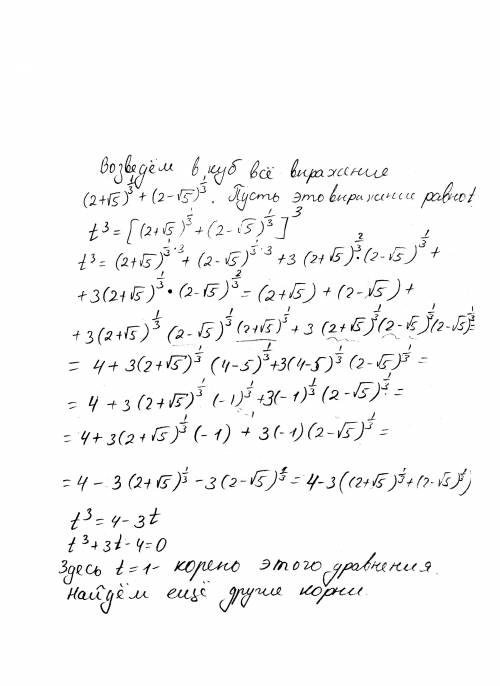 Возведём в куб всё выражение
(2+√5)^{1/3} + (2-√5)^{1/3}. Пусть это выражение равно t
t³ = [(2+√5)^{1/3} + (2-√5)^{1/3}]³
t³ = (2+√5)^{1/3·3} + (2-√5)^{1/3·3} + 3(2+√5)^{2/3}·(2-√5)^{1/3} +
+ 3(2+√5)^{1/3}·(2-√5)^{2/3} = (2+√5) + (2-√5) +
+ 3(2+√5)^{1/3}(2-√5)^{1/3}(2+√5)^{1/3} + 3(2+√5)^{1/3}(2-√5)^{1/3}(2-√5)^{1/3} =
= 4 + 3(2+√5)^{1/3}(4-5)^{1/3} + 3(4-5)^{1/3}(2-√5)^{1/3} =
= 4 + 3(2+√5)^{1/3}(-1)^{1/3} + 3(-1)^{1/3}(2-√5)^{1/3} =
= 4 + 3(2+√5)^{1/3}(-1) + 3(-1)(2-√5)^{1/3} =
= 4 - 3(2+√5)^{1/3} - 3(2-√5)^{1/3} = 4-3((2+√5)^{1/3}+(2-√5)^{1/3})
t³ = 4-3t
t³+3t-4=0
Здесь t=1- корень этого уравнения.
Найдём ещё другие корни.